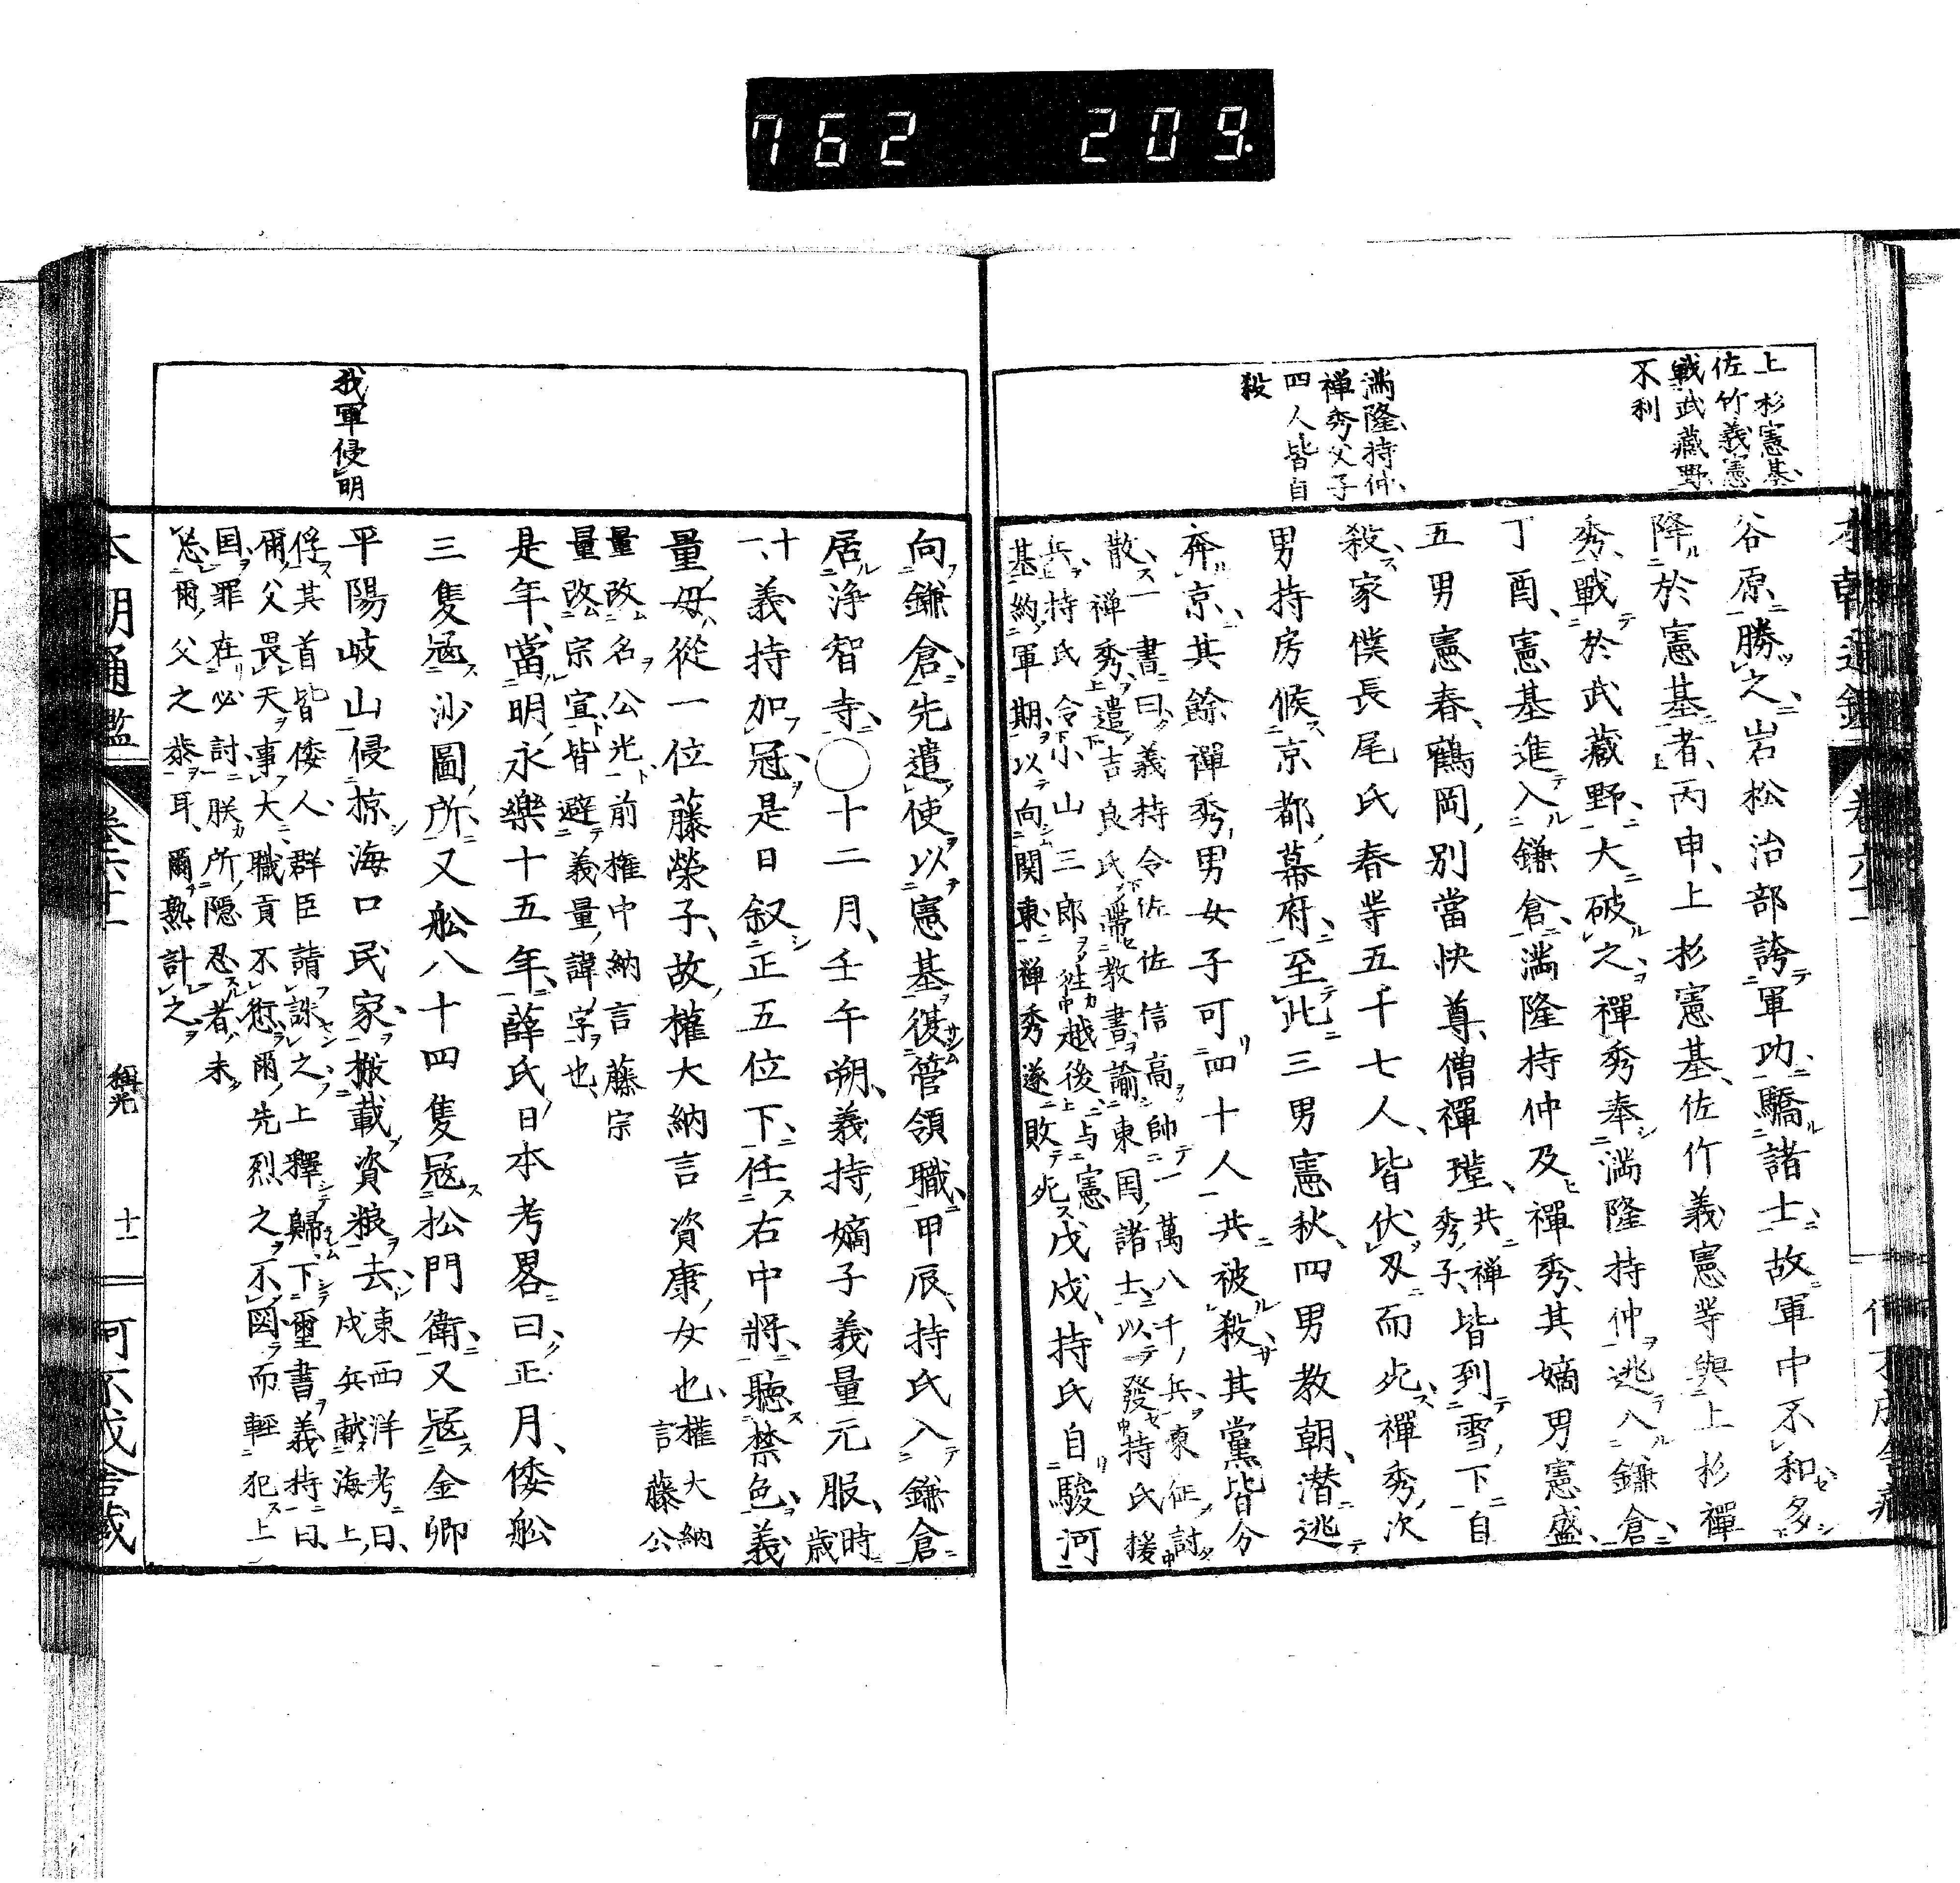 762 209.
上杉憲基
佐竹義憲
戰武藏野
不利
滿隆持仲
禪秀父子
四人皆自
殺
谷原勝之岩松治部誇軍功驕諸士故軍中不和多
降於憲基者丙申上杉憲基佐竹義憲等與上杉禪
秀戰於武藏野大破之禪秀奉滿隆持仲逃入鎌倉
丁酉憲基進入鎌倉滿隆持仲及禪秀其嫡男憲盛
五男憲春鶴岡別當快尊僧禪瑾共禪秀子皆到雪下自
殺家僕長尾氏春等五千七人皆伏刄而死禪秀次
男持房候京都幕府至此三男憲秋四男教朝潛逃
奔京其餘禪秀男女子可四十人共被殺其黨皆分
散一書曰義持令佐佐信高帥一萬八千兵東征討
禅秀遣吉良氏帶教書諭東国諸士以發持氏援
兵持氏令小山三郎徃越後与憲
基約軍期以向関東禅秀遂敗死戊戌持氏自駿河
向鎌倉先遣使以憲基復管領職甲辰持氏入鎌倉
居浄智寺〇十二月壬午朔義持嫡子義量元服時歳
十一義持加冠是日叙正五位下任右中將聴禁色義
量母從一位藤榮子故權大納言資康女也權大納言藤公
量改名公光前權中納言藤宗
量改宗宣皆避義量諱字也
是年當明永樂十五年薛氏日本考畧曰正月倭舩
三隻冦沙圖所又舩八十四隻冦松門衛又冦金卿
平陽岐山侵掠海口民家搬載資粮去東西洋考曰
戌兵献海上
俘其首皆倭人群臣請誅之上釋歸下璽書義持曰
爾父畏天事大職貢不愆爾先烈之不図而輕犯上
国罪在必討朕所隠忍者未
忘爾父之恭耳爾熟計之
我軍侵明
本朝通鑑
卷六十一
稱光
十一